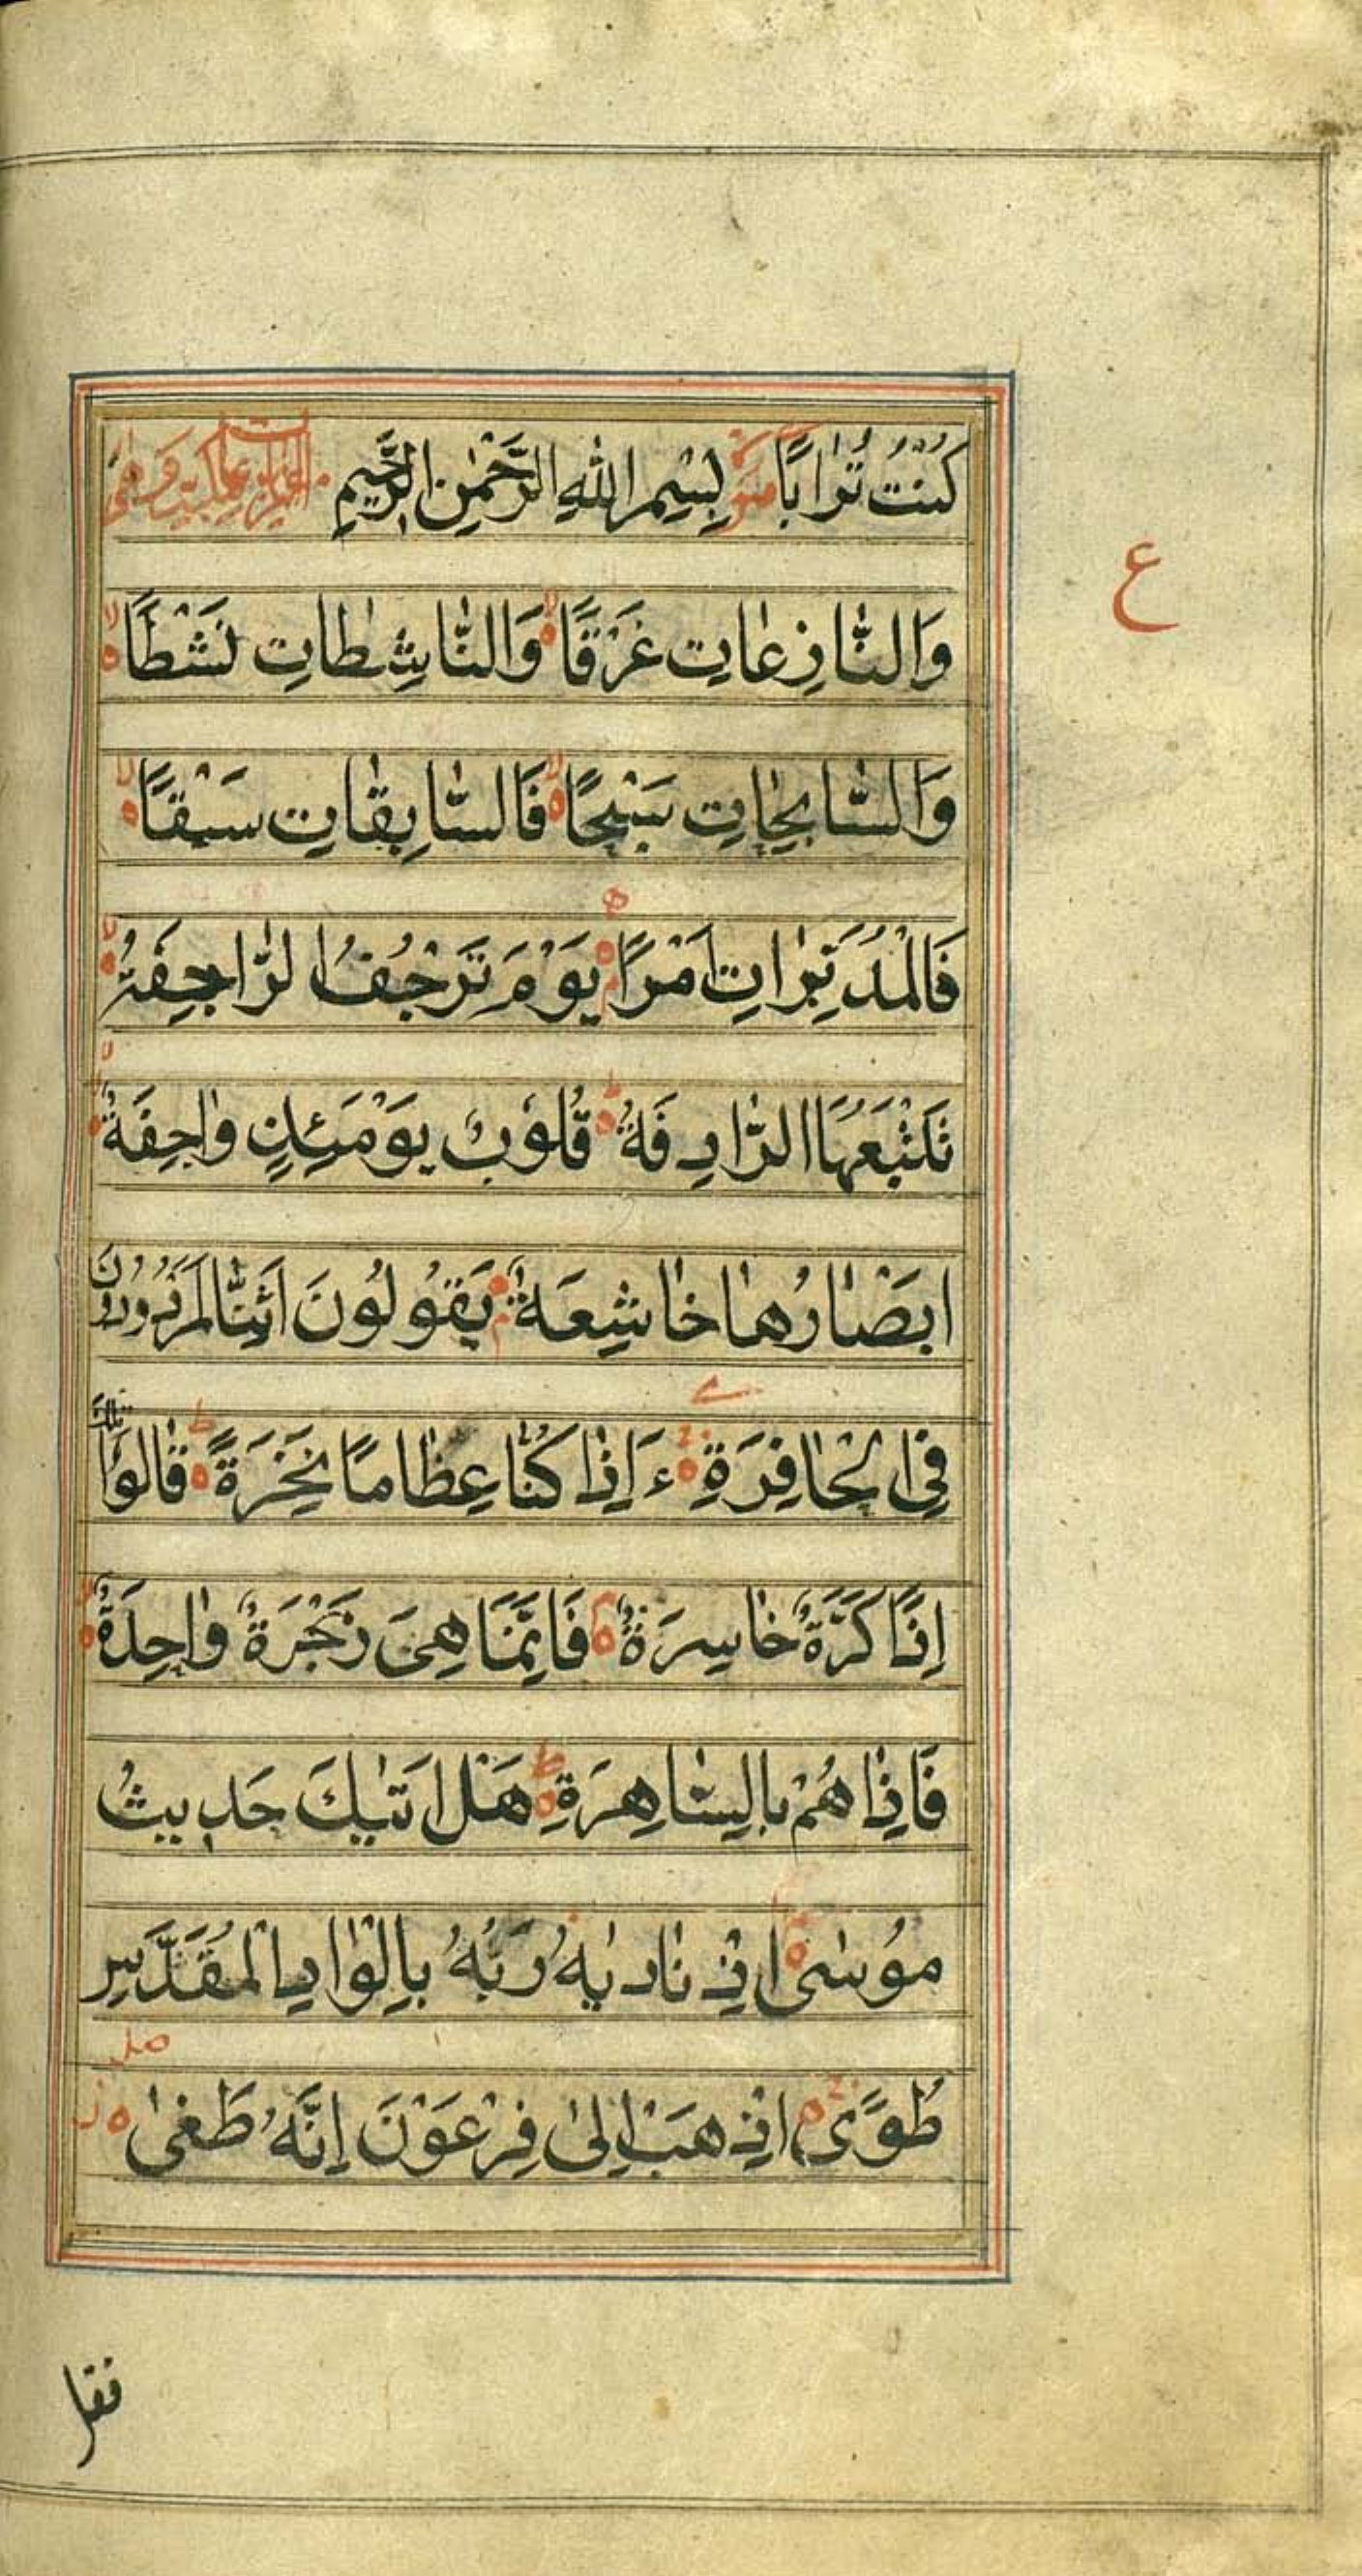 كُنْتُ تُرٰابًا بِسْمِ اللهِ الرَّحْمٰنِ الرَّحِيمِ
ع
وَالنّٰازِعٰاتِ غَرْقًا وَالنّٰاشِطٰاتِ نَشْطًا
وَالسّٰابِحٰاتِ سَبْحًا فَالسّٰابِقٰاتِ سَبْقًا
فَالْمُدَبِّرٰاتِ اَمْرًا يَوْمَ تَرْجُفُ الرّٰاجِفَةُ
تَتْبَعُهَا الرّٰادِفَةُ قُلُوبٌ يَوْمَئِذٍ وٰاجِفَةٌ
ابَصْٰارُهٰا خٰاشِعَةٌ يَقُولُونَ اَئِنّٰا لَمَرْدُودُونَ
فِي الْحٰافِرَةِ ءَاِذٰا كُنّٰا عِظٰامًا نَخِرَةً قٰالُوا تِلْكَ
اِذًا كَرَّةٌ خٰاسِرَةٌ فَاِنَّمَا هِيَ زَجْرَةٌ وٰاحِدَةٌ
فَاِذٰا هُمْ بِالسّٰاهِرَةِ هَلْ اَتٰيكَ حَدِيثُ
مُوسٰى اِذْ نٰادٰيهُ رَبُّهُ بِالْوٰادِ الْمُقَدَّسِ
طُوًى اِذْهَبْ اِلىٰ فِرْعَوْنَ اِنَّهُ طَغىٰ
فقل